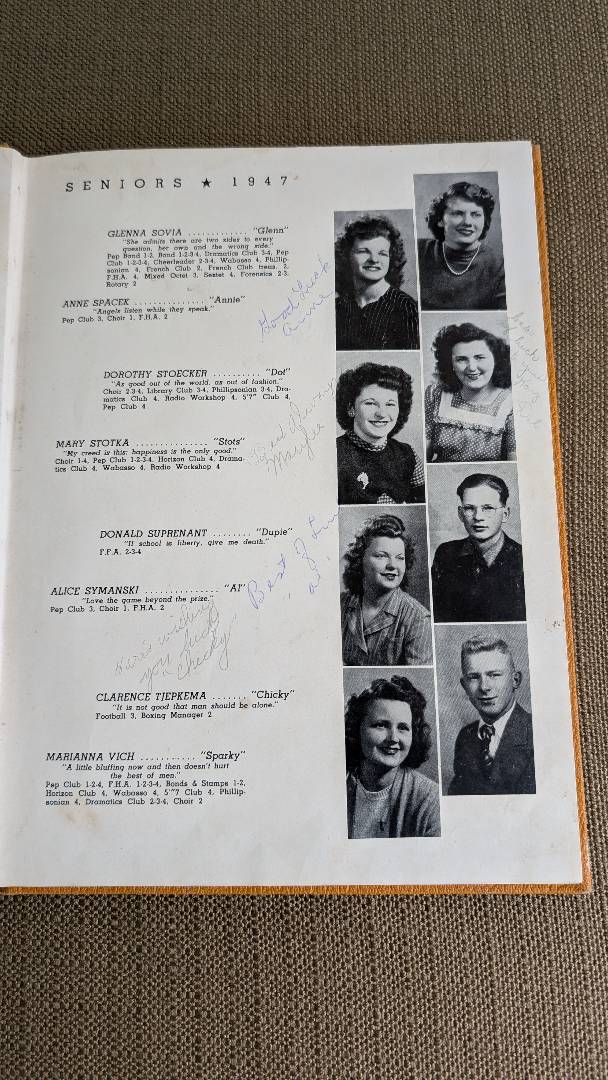 SENIORS ★ 1947
GLENNA SOVIA ............. "Glenn"
"She admits there are two sides to every
question, her own and the wrong side."
Pep Band 1-2, Band 1-2-3-4, Dramatics Club 3-4, Pep
Club 1-2-3-4, Cheerleader 2-3-4, Wabasso 4, Phillip-
sonian 4, French Club 2, French Club treas. 2,
F.H.A. 4, Mixed Octet 3, Sextet 4, Forensics 2-3,
Rotary 2
ANNE SPACEK ............... "Annie"
"Angels listen while they speak."
Pep Club 3, Choir 1, F.H.A. 2
Good Luck
Anne
DOROTHY STOECKER .......... "Dot"
"As good out of the world, as out of fashion."
Choir 2-3-4, Library Club 3-4, Phillipsonian 3-4, Dra-
matics Club 4, Radio Workshop 4, 5'7" Club 4,
Pep Club 4
MARY STOTKA ............... "Stots"
"My creed is this: happiness is the only good."
Choir 1-4, Pep Club 1-2-3-4, Horizon Club 4, Drama-
tics Club 4, Wabasso 4, Radio Workshop 4
DONALD SUPRENANT ........ "Dupie"
"If school is liberty, give me death."
F.F.A. 2-3-4
ALICE SYMANSKI ............... "Al"
"Love the game beyond the prize."
Pep Club 3, Choir 1, F.H.A. 2
Best of Luck
Al
Here's wishing
you luck
"Chicky"
CLARENCE TJEPKEMA ....... "Chicky"
"It is not good that man should be alone."
Football 3, Boxing Manager 2
MARIANNA VICH ........... "Sparky"
"A little bluffing now and then doesn't hurt
the best of men."
Pep Club 1-2-4, F.H.A. 1-2-3-4, Bonds & Stamps 1-2,
Horizon Club 4, Wabasso 4, 5'7" Club 4, Phillip-
sonian 4, Dramatics Club 2-3-4, Choir 2